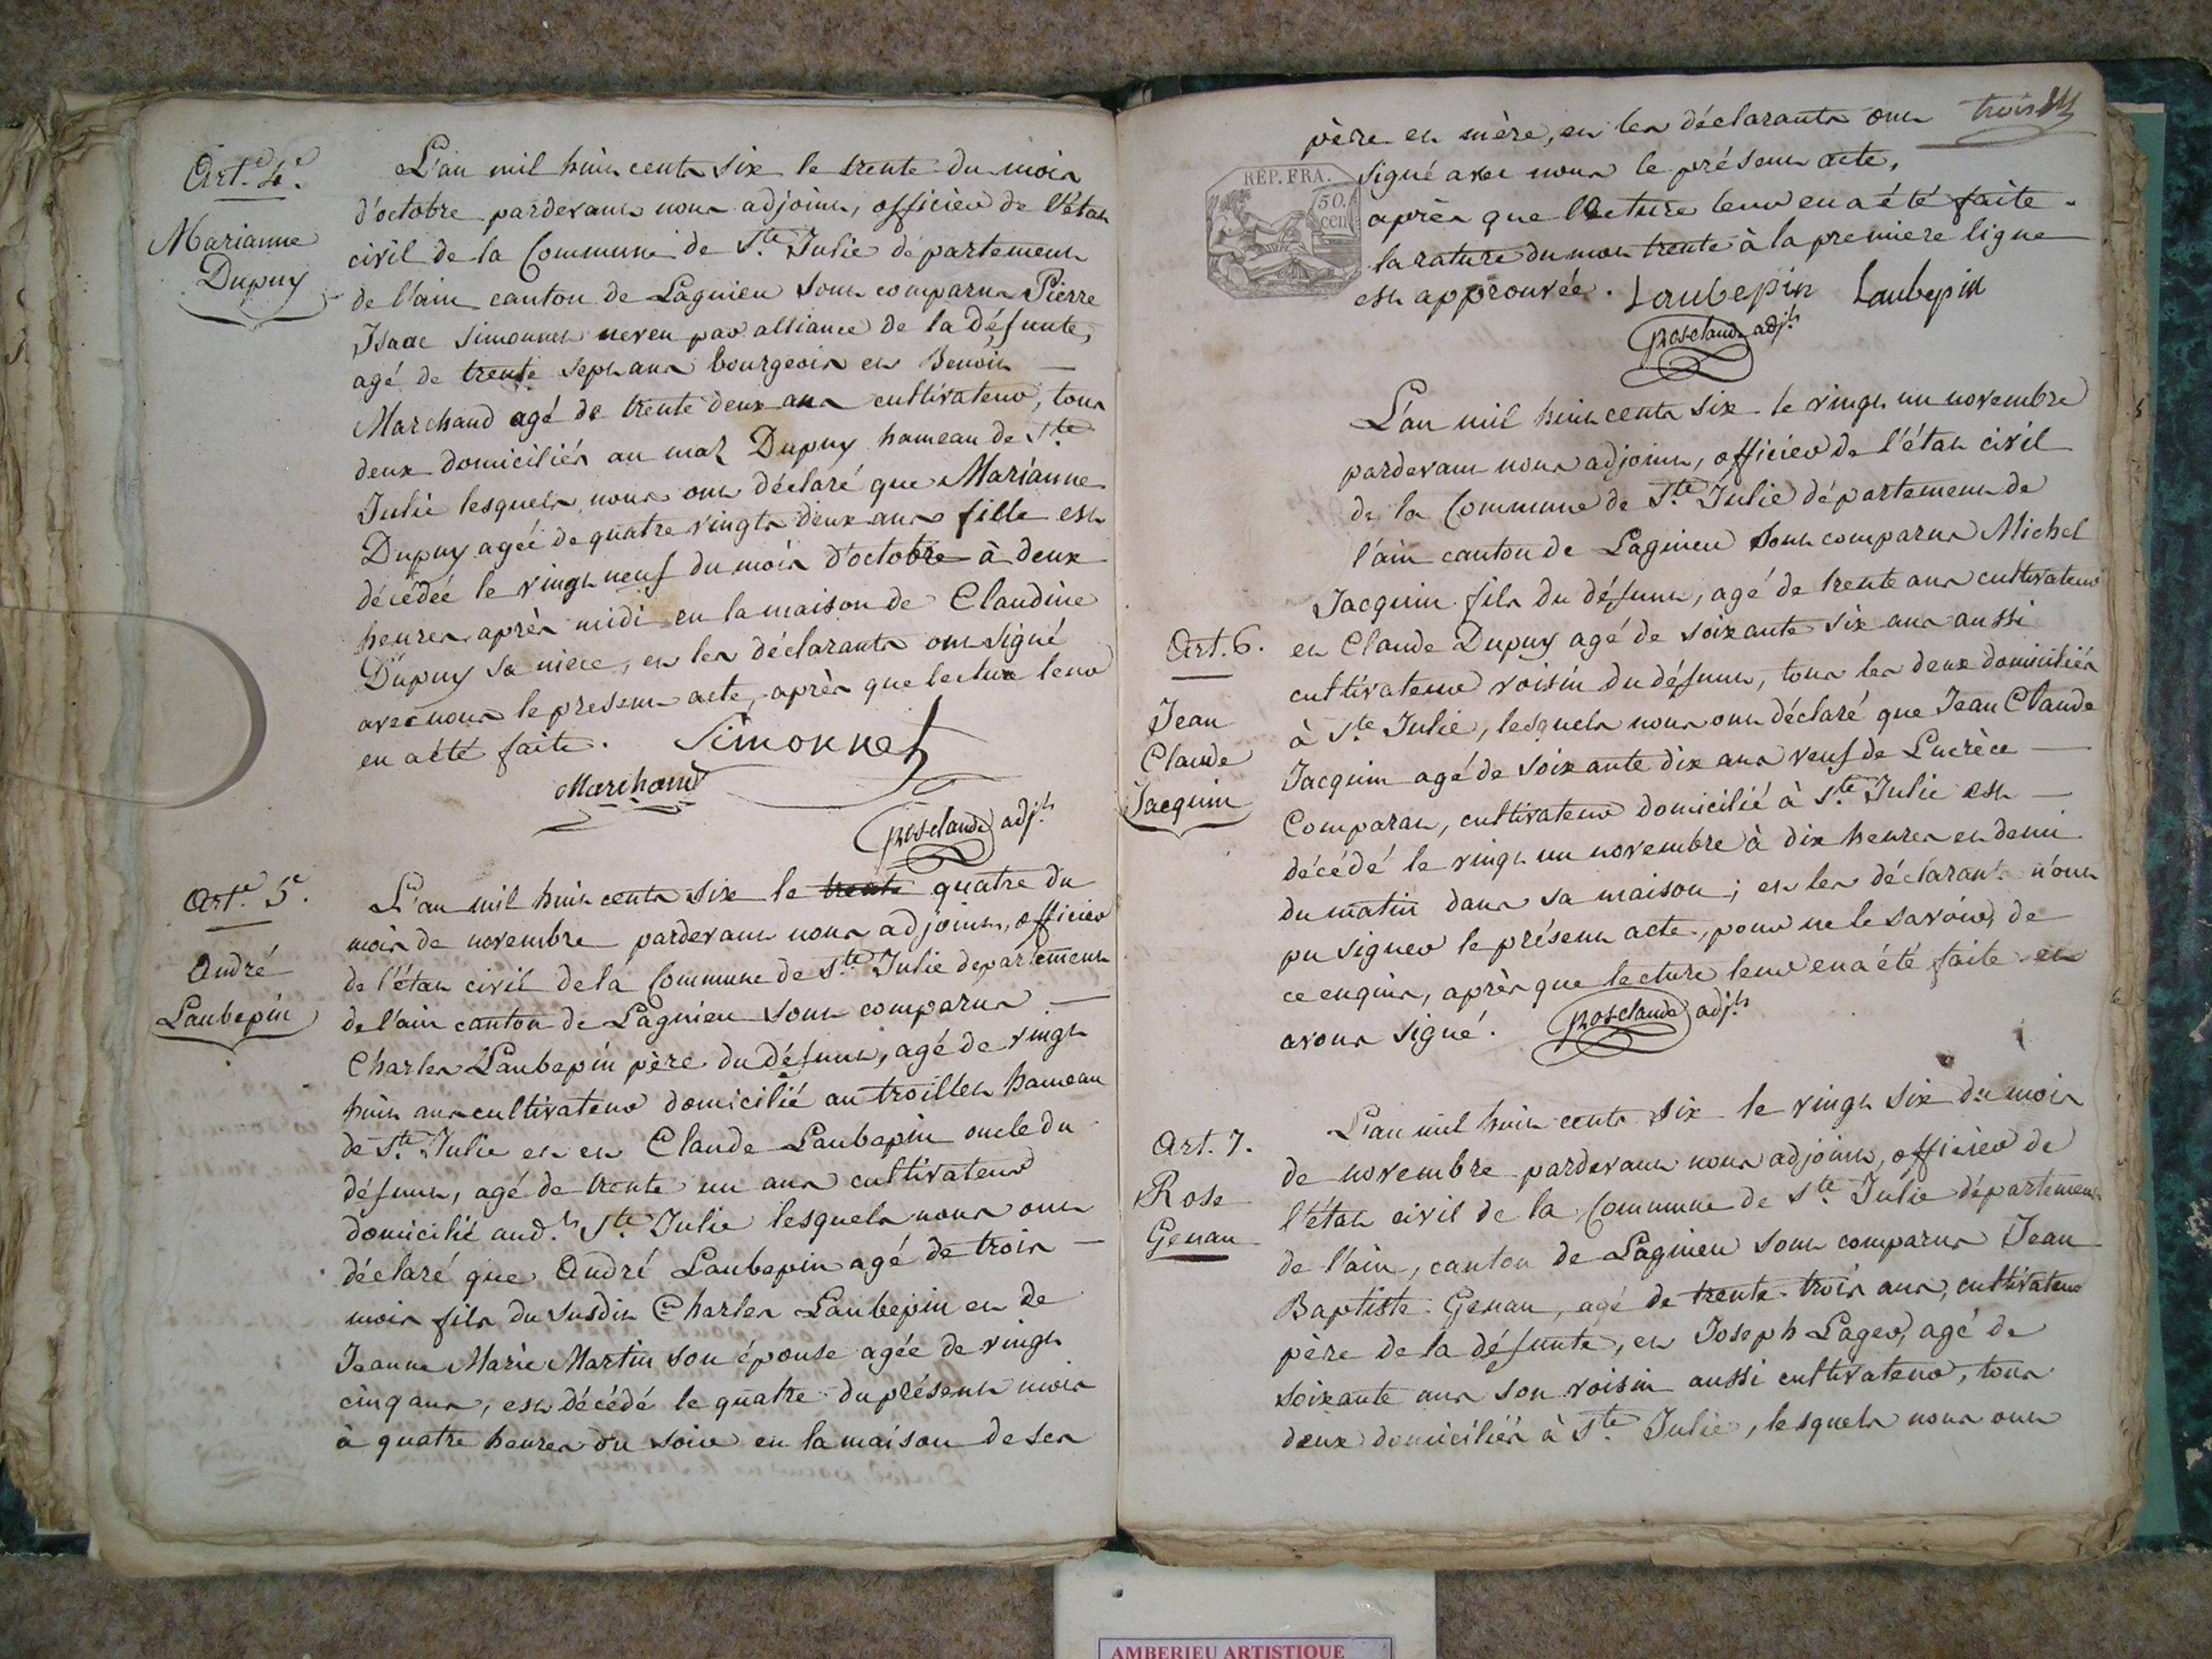 Art.e 4.e
Marianne
Dupuy
L'an mil huit cents six le trente du mois
d'octobre pardevant nous adjoint, officier de l'état
civil de la Commune de Ste. Julie département
de l'ain canton de Lagnieu sont comparus Pierre
Isaac Simonnet neveu par alliance de la défunte,
agé de trente sept ans bourgeois et Benoit
Marchand agé de trente deux ans cultivateur, tous
deux domiciliés au maz Dupuy hameau de Ste.
Julie lesquels nous ont déclaré que Marianne
Dupuy agée de quatre vingts deux ans fille est
décédée le vingt neuf du mois d'octobre à deux
heures après midi en la maison de Claudine
Dupuy sa niece, et les déclarants ont signé
avec nous le présent acte, après que lecture leur
en a été faite. Simonnet
Marchand
Rosclaude adj.t
Art.e 5.e
André
Laubepin
L'an mil huit cents six le trente quatre du
mois de novembre pardevant nous adjoint, officier
de l'état civil de la Commune de Ste. Julie département
de l'ain canton de Lagnieu sont comparus
Charles Laubepin père du défunt, agé de vingt
huit ans cultivateur domicilié au troillet hameau
de Ste. Julie et en Claude Laubepin oncle du
défunt, agé de trente un ans cultivateur
domicilié aud.t Ste. Julie lesquels nous ont
déclaré que André Laubepin agé de trois
mois fils du susdit Charles Laubepin et de
Jeanne Marie Martin son épouse agée de vingt
cinq ans, est décédé le quatre du présent mois
à quatre heures du soir en la maison de ses
trois
père et mère, et les déclarants ont
RÉP. FRA.
50.
cen
signé avec nous le présent acte,
après que lecture leur en a été faite.
la rature du mot trente à la premiere ligne
est approuvée. Laubepin Laubepin
Rosclaude adj.t
Art. 6.
Jean
Claude
Jacquin
L'an mil huit cents six le vingt un novembre
pardevant nous adjoint, officier de l'état civil
de la Commune de Ste. Julie département de
l'ain canton de Lagnieu sont comparus Michel
Jacquin fils du défunt, agé de trente ans cultivateur
et Claude Dupuy agé de soixante six ans aussi
cultivateur voisin du défunt, tous les deux domiciliés
à Ste. Julie, lesquels nous ont déclaré que Jean Claude
Jacquin agé de soixante dix ans veuf de Lucrèce
Comparat, cultivateur domicilié à Ste. Julie est
décédé le vingt un novembre à dix heures et demi
du matin dans sa maison; et les déclarants n'ont
pu signer le présent acte, pour ne le savoir, de
ce enquis, après que lecture leur en a été faite et
avons signé. Rosclaude adj.t
Art. 7.
Rose
Genan
L'an mil huit cents six le vingt six du mois
de novembre pardevant nous adjoint, officier de
l'état civil de la Commune de Ste. Julie département
de l'ain, canton de Lagnieu sont comparus Jean
Baptiste Genan, agé de trente trois ans, cultivateur
père de la défunte, et Joseph Lager, agé de
soixante ans son voisin aussi cultivateur, tous
deux domiciliés à Ste. Julie, lesquels nous ont
AMBERIEU ARTISTIQUE